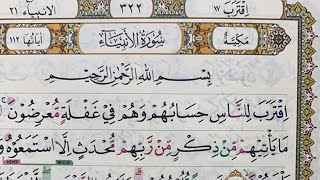 اِقْتَرَبَ ١٧
٣٢٢
الانبياء ٢١
مَكِّيَّةٌ
سُورَةُ الْاَنْبِيَاءِ
اٰيَاتُهَا ١١٢
بِسْمِ اللّٰهِ الرَّحْمٰنِ الرَّحِيْمِ
اِقْتَرَبَ لِلنَّاسِ حِسَابُهُمْ وَهُمْ فِيْ غَفْلَةٍ مُّعْرِضُوْنَ
مَا يَأْتِيْهِمْ مِّنْ ذِكْرٍ مِّنْ رَّبِّهِمْ مُّحْدَثٍ اِلَّا اسْتَمَعُوْهُ وَ